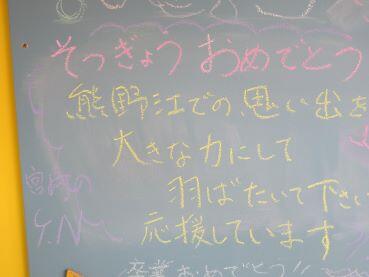 そつぎょう おめでとう
熊野江での思い出を
大きな力にして
羽ばたいて下さい
応援しています
宮崎の
Y.N
卒業おめでとう!!